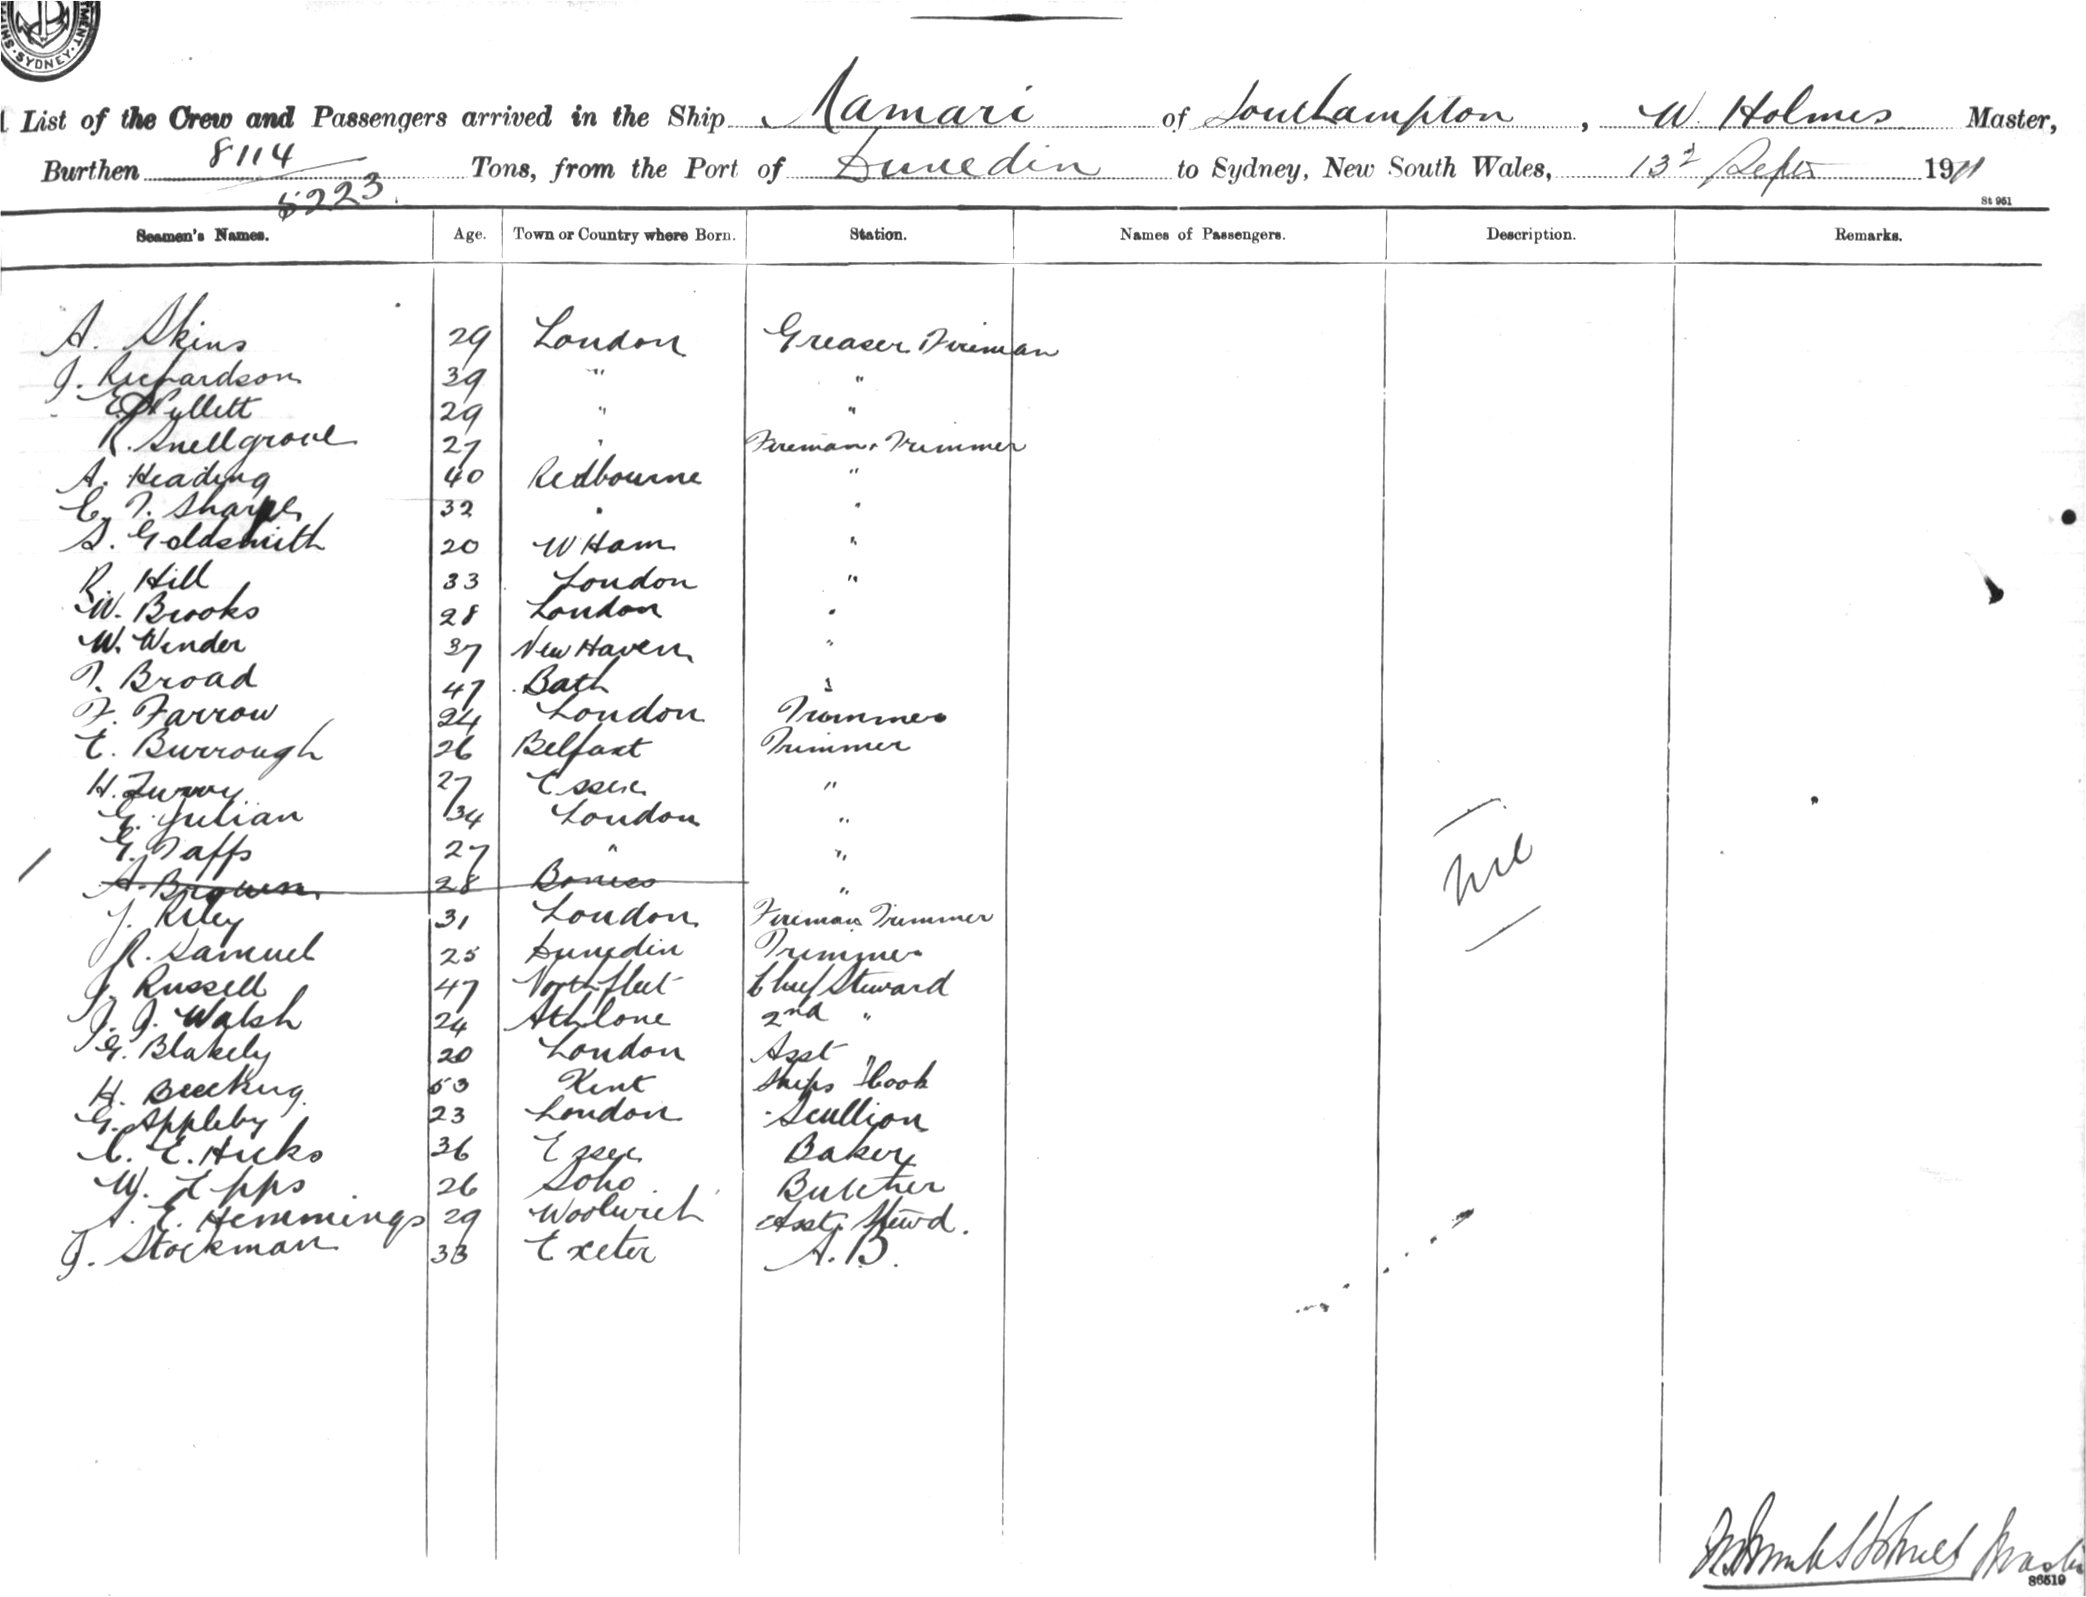 SYDNEY
List of the Crew and Passengers arrived in the Ship Mamari of Southampton, W. Holmes Master,
Burthen 8114 Tons, from the Port of Dunedin to Sydney, New South Wales, 13th Septr 1911
5223.
St 951
Seamen's Names. Age. Town or Country where Born. Station. Names of Passengers. Description. Remarks.
A. Skins 29 London Greaser Fireman
J. Richardson 39 " "
E. Pullett 29 " "
R. Snellgrove 27 " Fireman & Trimmer
A. Heading 40 Redbourne "
C. T. Sharpe 32 " "
S. Goldsmith 20 W Ham "
R. Hill 33 London "
W. Brooks 28 London "
W. Wender 37 New Haven "
T. Broad 47 Bath "
F. Farrow 24 London Trimmer
E. Burrough 26 Belfast Trimmer
H. 27 Essex "
G. Julian 34 London "
G. Taffs 27 " "
A. Brown 28 Boness "
J. Riley 31 London Fireman Trimmer
R. Samuel 25 Dunedin Trimmer
J. Russell 47 Northfleet Chief Steward
J. J. Walsh 24 Athlone 2nd "
G. Blakely 20 London Asst "
H. 53 Kent Ships Cook
G. Appleby 23 London Scullion
C. E. Hicks 36 Essex Baker
W. Epps 26 Soho Butcher
A. E. Hemmings 29 Woolwich Asst. Stewd.
J. Stockman 33 Exeter A.B.
Nil
Holmes Master
86519